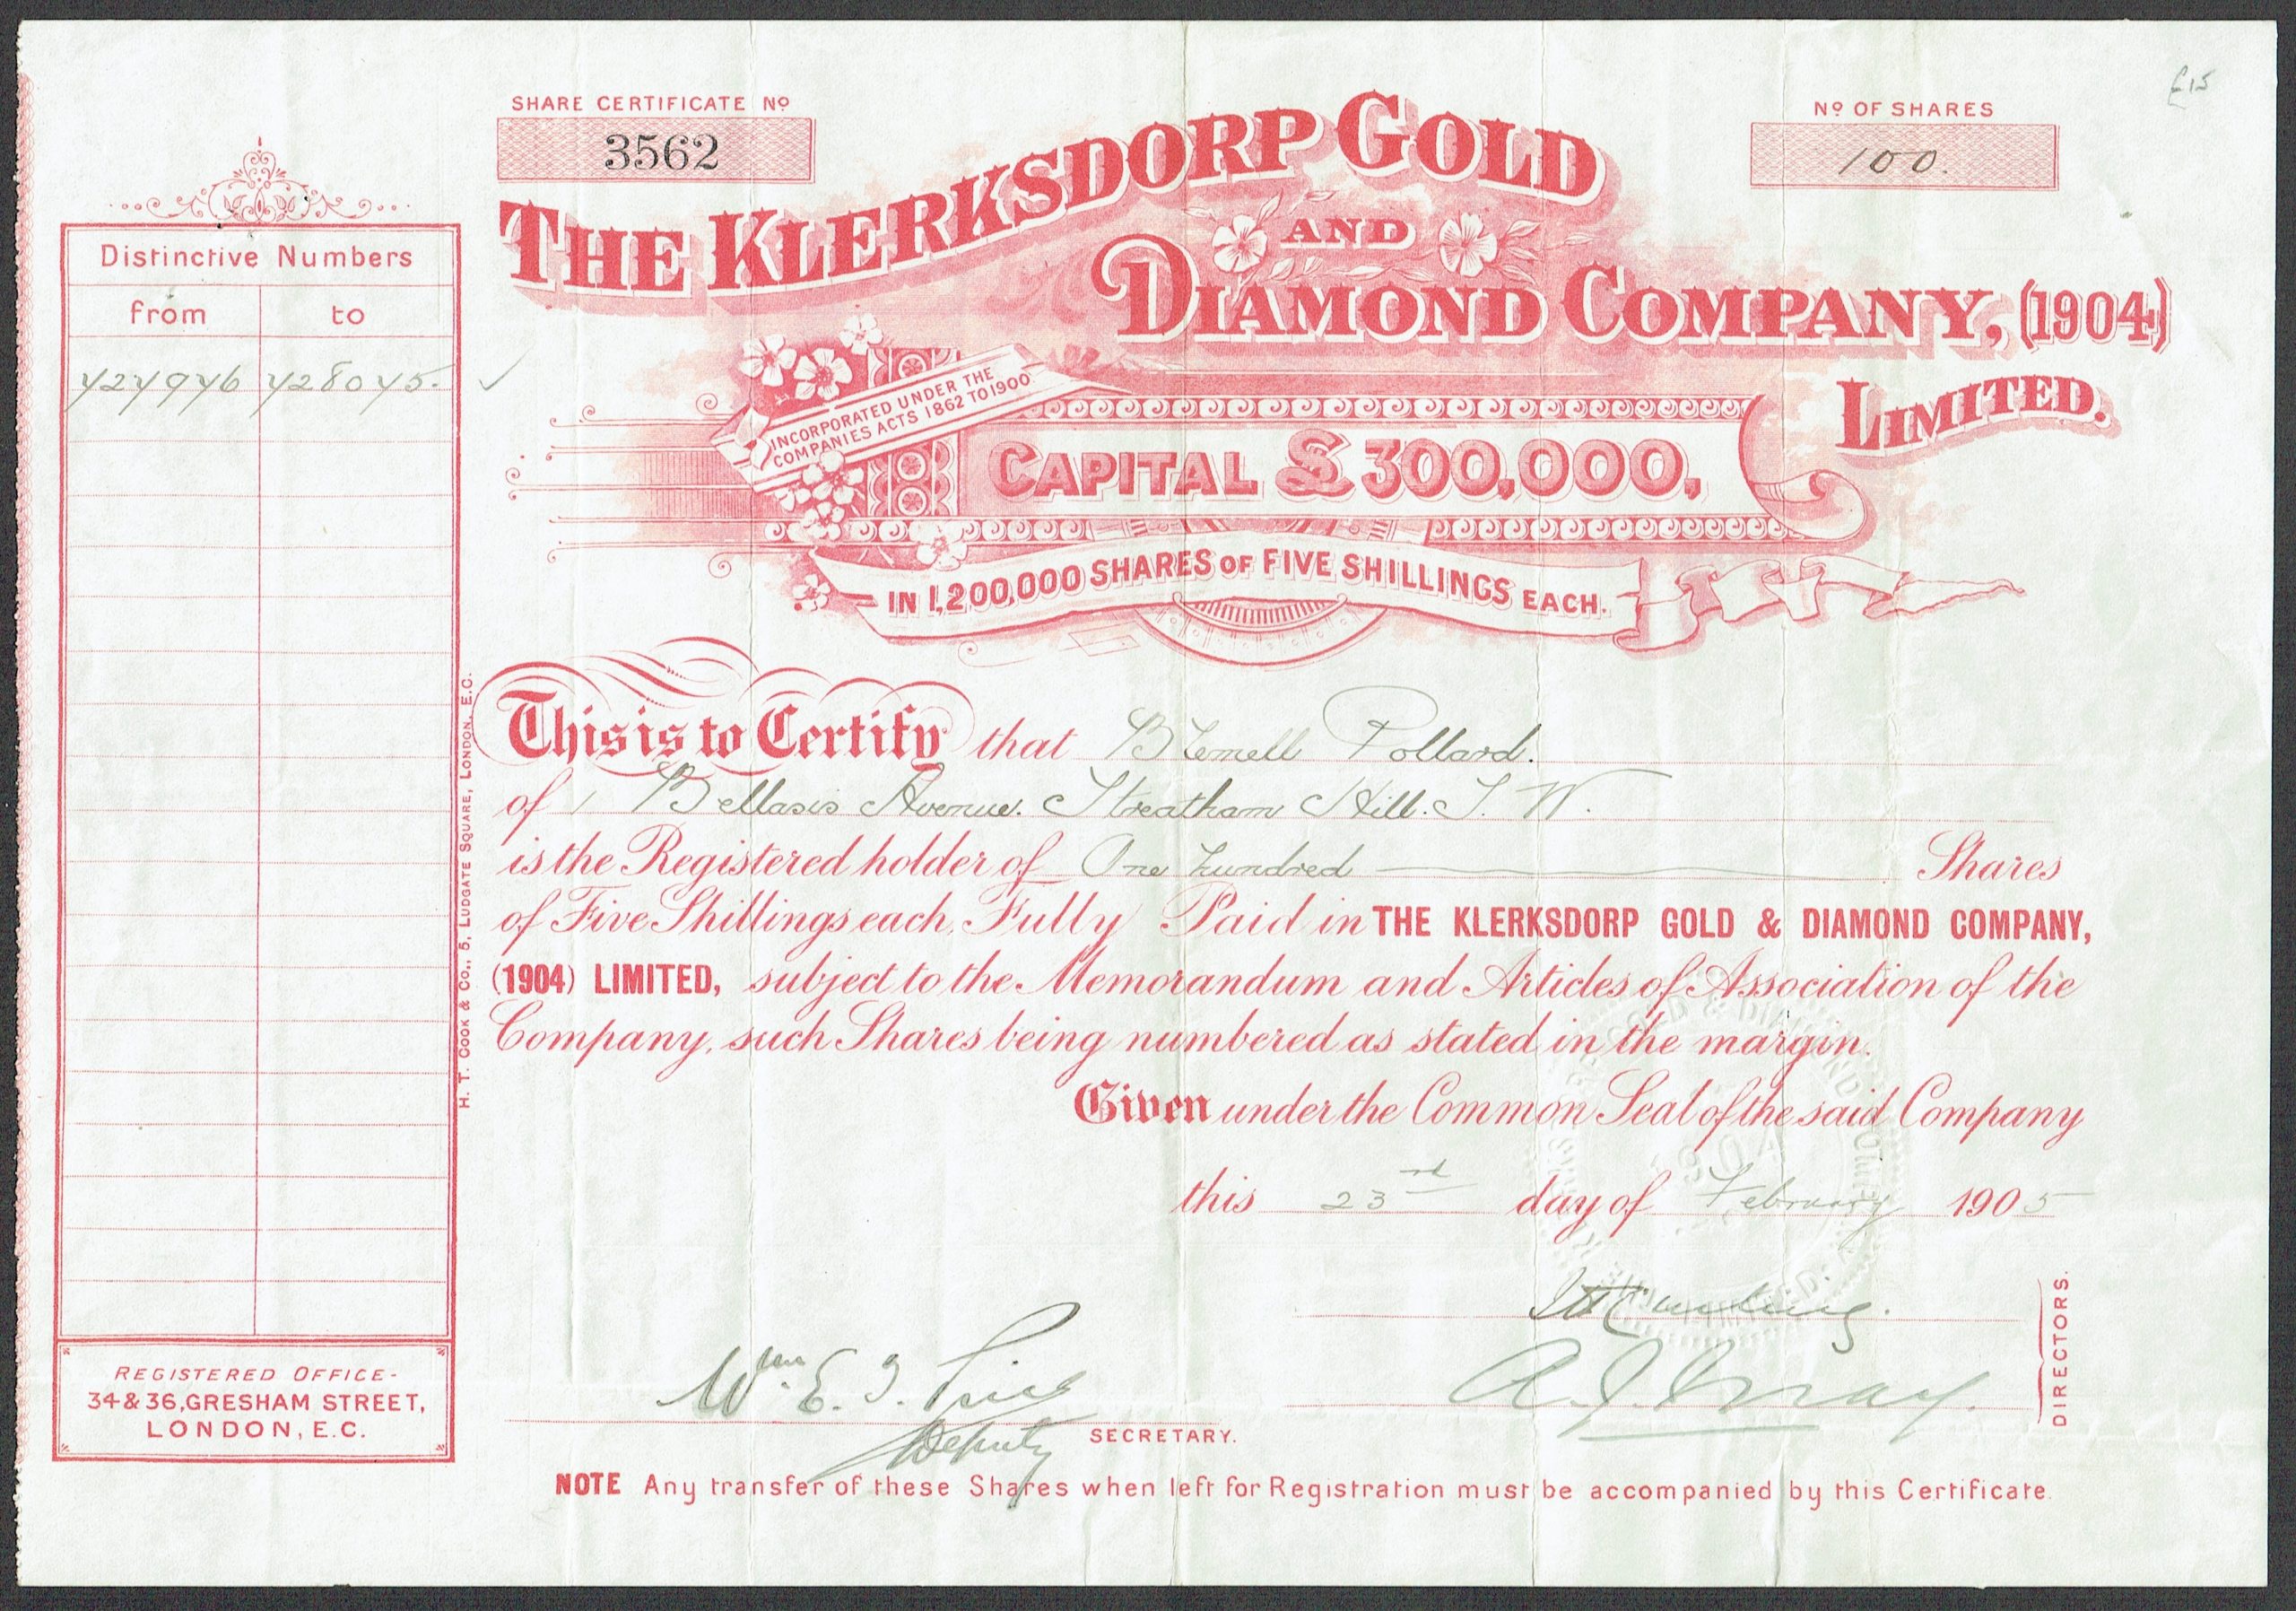 £15
SHARE CERTIFICATE Nº
3562
Nº OF SHARES
100.
THE KLERKSDORP GOLD
AND
DIAMOND COMPANY, (1904)
LIMITED.
INCORPORATED UNDER THE
COMPANIES ACTS 1862 TO 1900
CAPITAL £300,000,
IN 1,200,000 SHARES OF FIVE SHILLINGS EACH.
Distinctive Numbers
from to
427946 428045.
This is to Certify that Pollard.
of 1 Bellasis Avenue. Streatham Hill. S. W.
is the Registered holder of One hundred Shares
of Five Shillings each, Fully Paid in THE KLERKSDORP GOLD & DIAMOND COMPANY,
(1904) LIMITED, subject to the Memorandum and Articles of Association of the
Company, such Shares being numbered as stated in the margin.
Given under the Common Seal of the said Company
this 23rd day of February 1905
H. T. COOK & CO., 5, LUDGATE SQUARE, LONDON, E.C.
1904
DIRECTORS.
Wm. E.
Deputy SECRETARY.
REGISTERED OFFICE-
34 & 36, GRESHAM STREET,
LONDON, E.C.
NOTE Any transfer of these Shares when left for Registration must be accompanied by this Certificate.